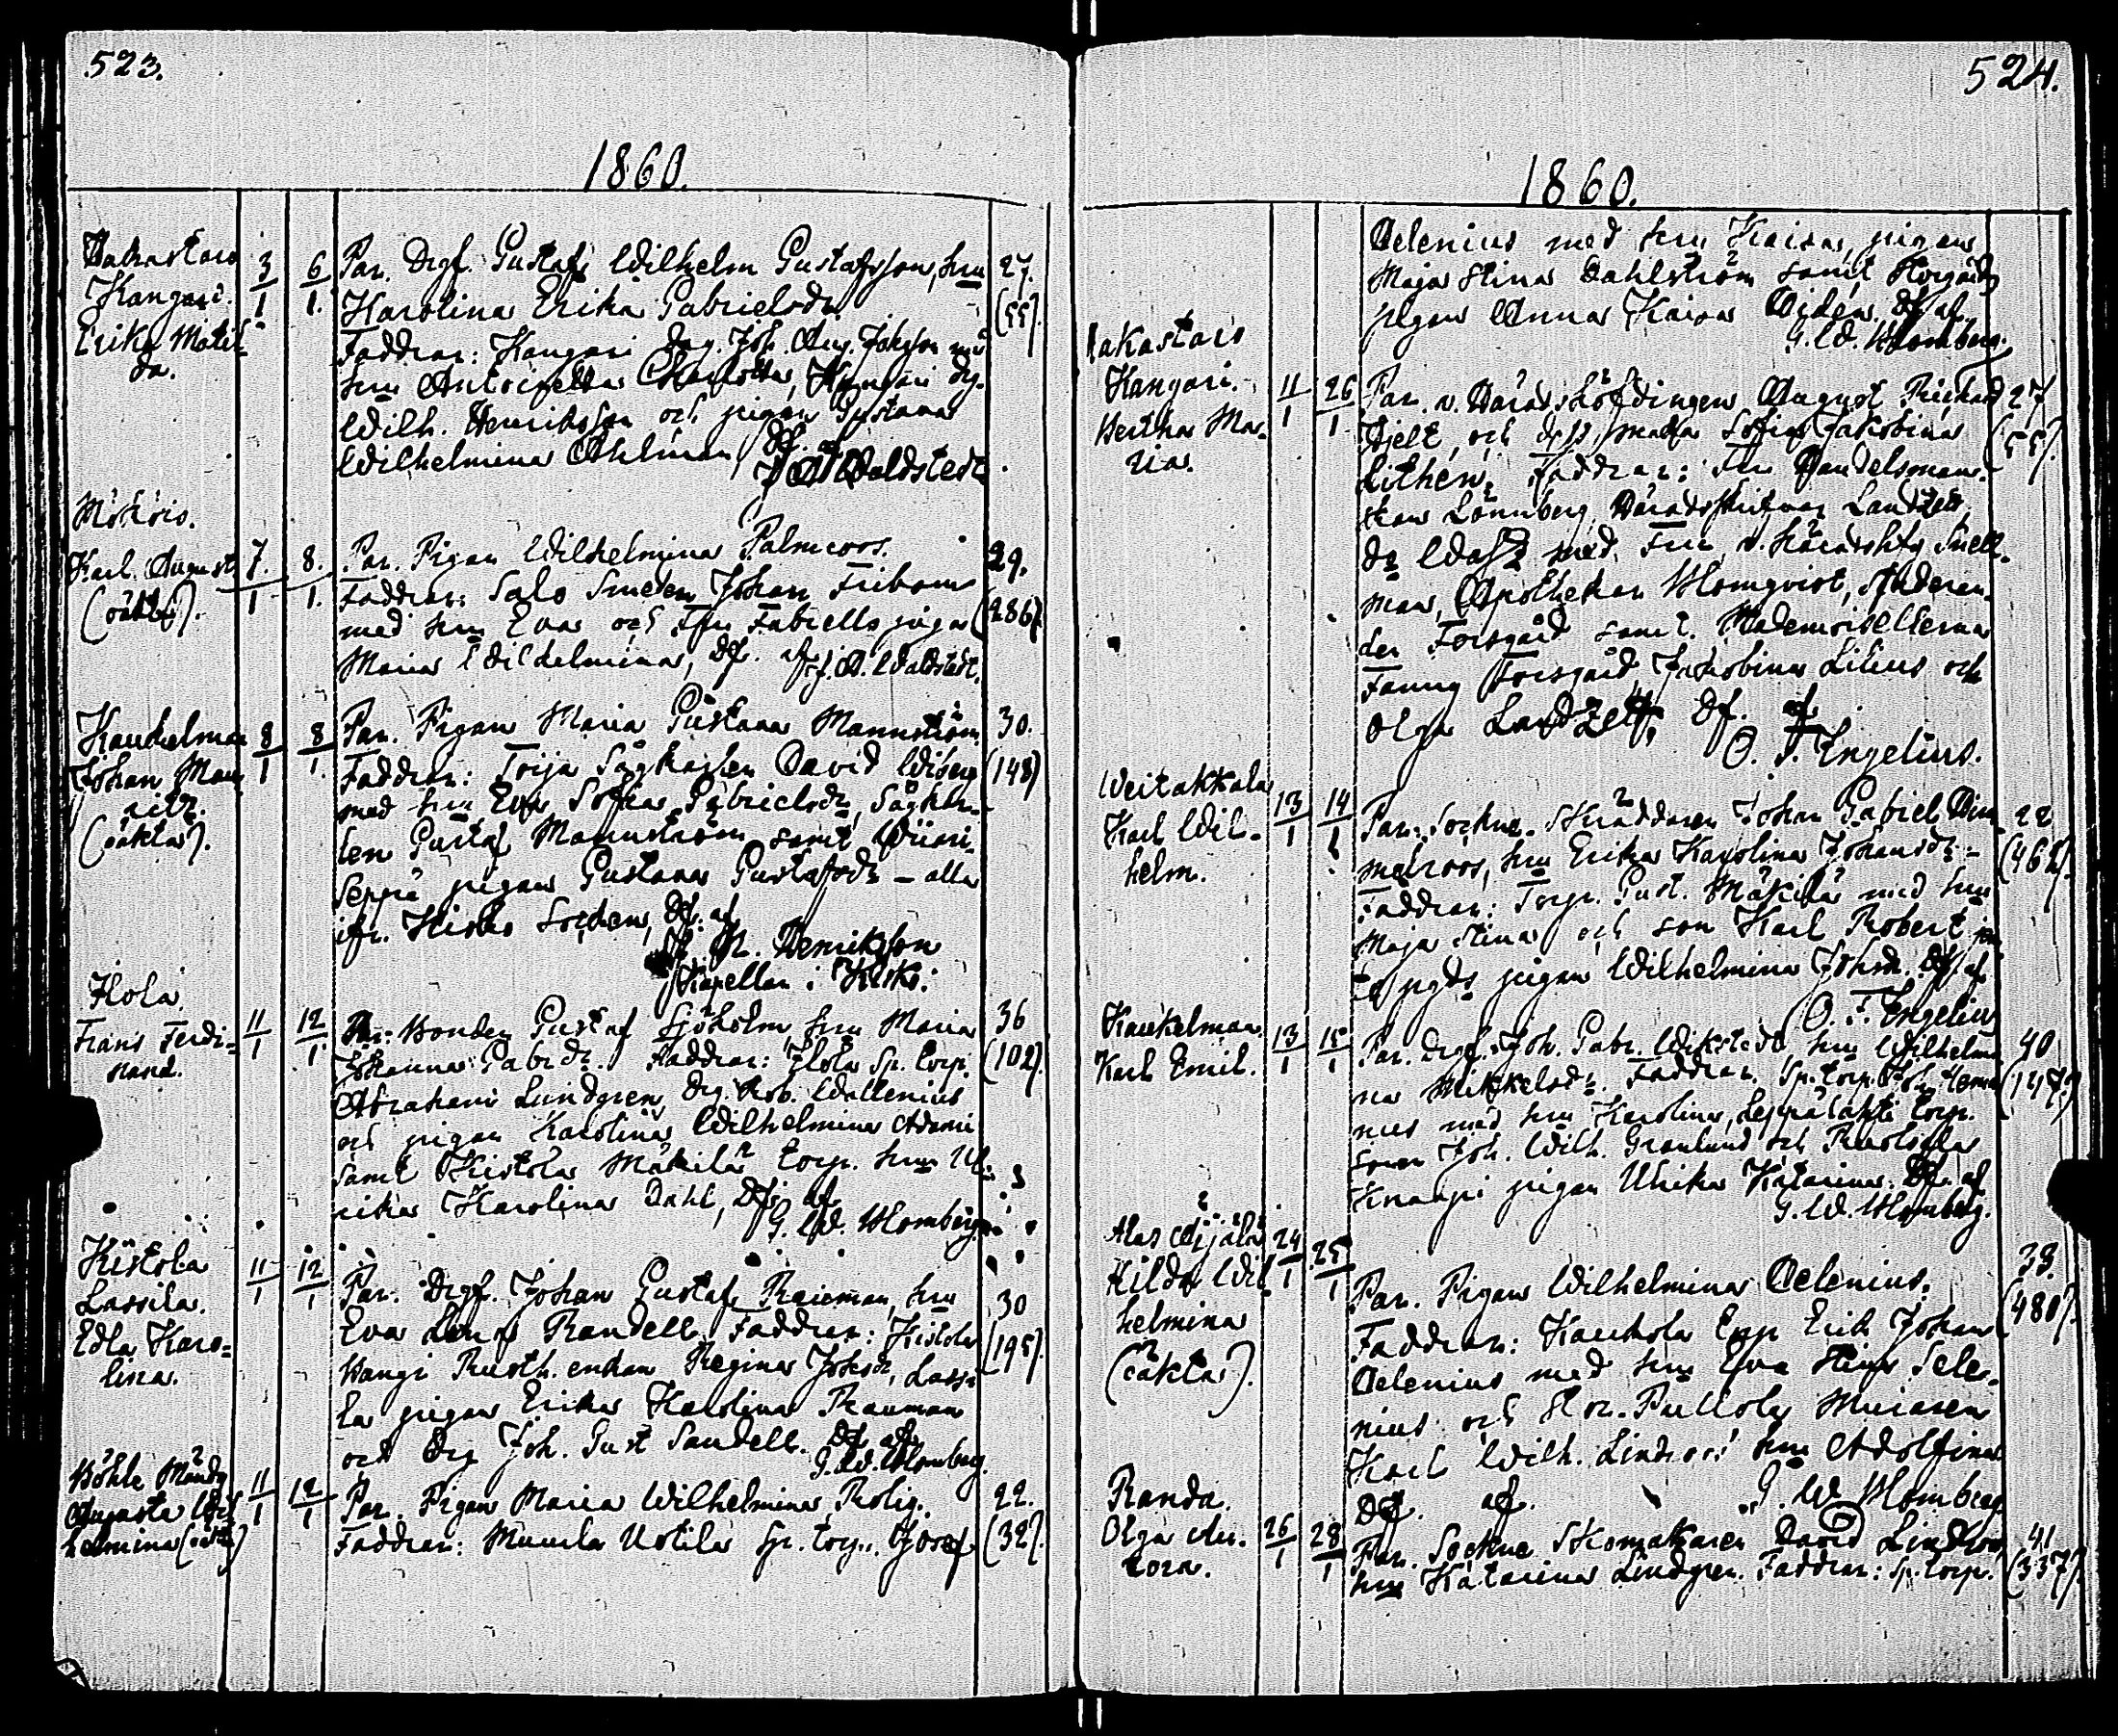 523.
1860.
Kangari.
Erika Matil-
da.
3/1
6/1.
Par. Drgf. Gustaf Wilhelm Gustafsson, hru
Karolina Erika Gabrielsdr
Faddrar: Kangari Joh. Aug. med
hru Charlotta, Kangari
Wilh. Henriksson och pigan Gustava
Wilhelmina Ahlman Df. af
Waldstedt
27.
(55).
Karl August
(oäkta).
7./1
8./1.
Par. Pigan Wilhelmina Palmroos.
Faddrar: Salo Smeden Johan Fribom
med hru Eva och Fru Fabiells pigan
Maria Wilhelmina, Df. af J. A. Waldstedt.
29.
(286).
Kaukelmaa
Johan Mau-
ritz.
(oäkta).
8/1
8/1.
Par. Pigan Maria Gustava Mannström
Faddrar: David Wiberg
med hru Eva Sofia Gabrielsdr, Sågkar-
len Gustaf Mannström samt
Seppä pigan Gustava Gustafsdr – alla
ifr. Kisko Socken, Df. af
Henriksson
Kapellan i Kisko.
30.
(148)
Flola
Frans Ferdi-
nand.
11/1
12/1
Par: Bonden Gustaf Sjöholm, hru Maria
Johanna Gabrdr. Faddrar: Flola Sp. torp.
Abraham Lundgren, Drg. Wallenius
och pigan Karolina Wilhelmina Adami
samt Kistola Mäkilä torp. hru Ul-
rika Karolina Dahl, Df. af
G. W. Blomberg.
36
(102).
Kistola
Lassila.
Edla Karo-
lina.
11/1
12/1
Par. Drgf. Johan Gustaf Rauman, hru
Eva Lena Randell. Faddrar: Kistola
Rusth. enkan Regina Johsdr, Lassi-
la pigan Erika Karolina Rauman
och Drg Joh. Gust Sandell. Df. af
G. W. Blomberg.
30
(195).
Augusta Wil
helmina (oäkta)
11/1
12/1
Par. Pigan Maria Wilhelmina Rolig.
Faddrar: Muurla Uotila Sp. torp. Josef
22.
(32).
524.
1860.
Aelenius med hru Kaisa, pigan
Maja Stina Dahlström samt
pigan Anna Kaisa Df. af
G. W. Blomberg.
Kangari.
Bertha Ma-
ria.
11/1
26/1
Par. v. Häradshöfdingen August Richard
Hjelt, och dess maka Sofia Jakobina
Lithén, Faddrar: Fru Handelsman-
skan Lönnberg, Häradsskrifvar Landzett,
med Fru, v. Häradshfg Snell-
man, Apothekar Blomqvist, Studeran-
den Forsgård samt Mademoisellerna
Fanny Forsgård, Jakobina Lilius och
Olga Landzett, Df. af
O. F. Engelius.
27
(55).
Weitakkala
Karl Wil-
helm.
13/1
14/1
Par. Sockne-Skräddaren Johan Gabriel Him-
melroos, hru Erika Karolina Johansdr –
Faddrar: Torp. Gust. Mäkilä med hru
Maja Stina och son Karl Robert
pigan Wilhelmina Johsdr. Df. af
O. F. Engelius
22
(462).
Kaukelmaa.
Karl Emil.
13/1
15/1
Par. Drgf. Joh. Gabr. Wikstedt, hru Wilhelmi-
na Mikkelsdr. Faddrar: Sp. torp. Joh.
nius med hru Karolina, Leppälahti torp.
sonen Joh. Wilh. Granlund och
Knaapi pigan Ulrika Katarina. Df. af
G. W. Blomberg.
40
(147).
Hilda Wil-
helmina
(oäkta).
24/1
25/1
Par. Pigan Wilhelmina Aelenius.
Faddrar: Kaukola Erik Johan
Aelenius med hru Eva Stina
nius och
Karl Wilh. hru Adolfina
Df. af. G. W. Blomberg
38.
(480).
Randa.
Olga Au-
rora.
26/1
28/1
Par. Sockne Skomakaren David
hru Katarina Lindgren. Faddrar: Sp. torp.
41
(337).